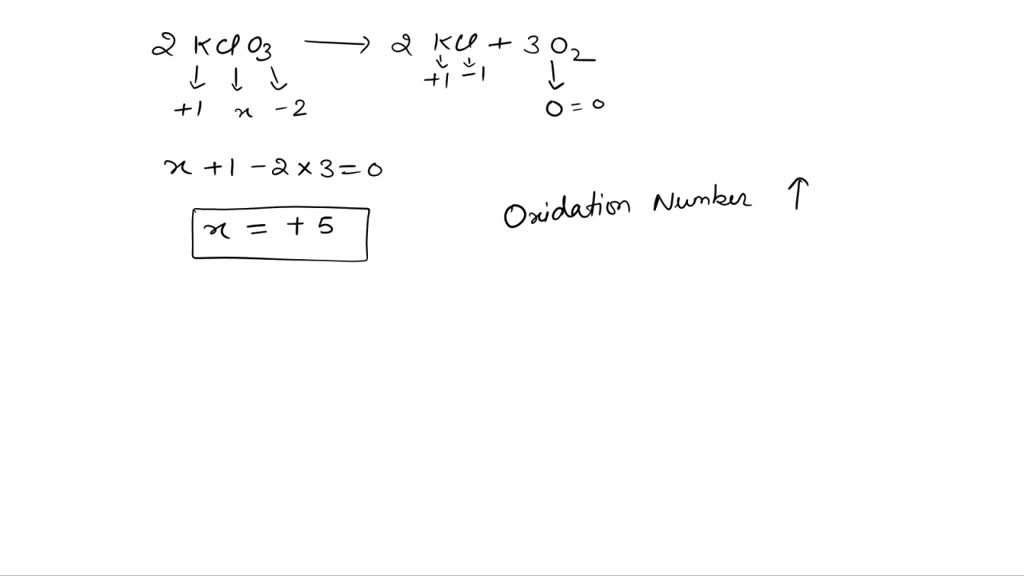 2 KClO3 → 2 KCl + 3 O2
↓ ↓ ↓ ↓ ↓ ↓
+1 x -2 +1 -1 0 = 0
x + 1 - 2 × 3 = 0
x = + 5
Oxidation Number ↑